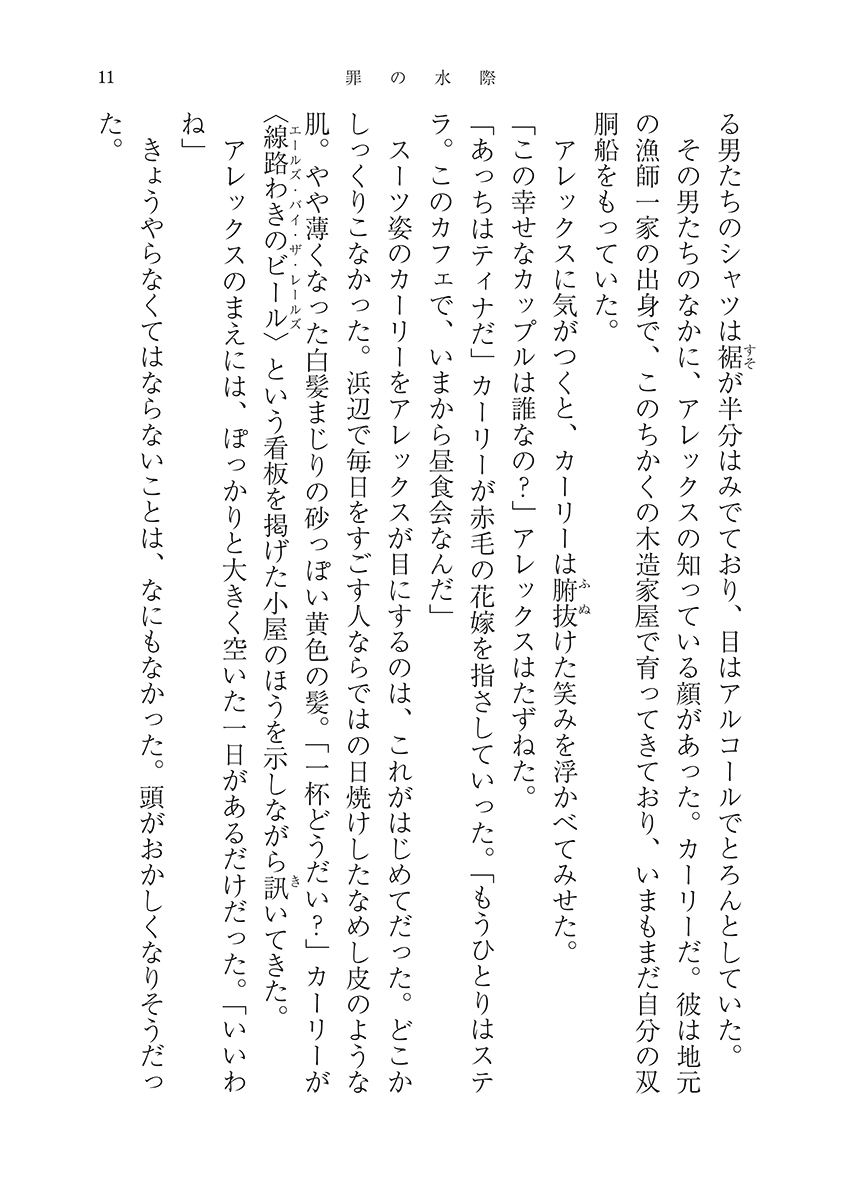 11
罪の水際
る男たちのシャツは裾が半分はみでており、目はアルコールでとろんとしていた。
すそ
その男たちのなかに、アレックスの知っている顔があった。カーリーだ。彼は地元
の漁師一家の出身で、このちかくの木造家屋で育ってきており、いまもまだ自分の双
胴船をもっていた。
アレックスに気がつくと、カーリーは腑抜けた笑みを浮かべてみせた。
ふぬ
「この幸せなカップルは誰なの?」アレックスはたずねた。
「あっちはティナだ」カーリーが赤毛の花嫁を指さしていった。「もうひとりはステ
ラ。このカフェで、いまから昼食会なんだ」
スーツ姿のカーリーをアレックスが目にするのは、これがはじめてだった。どこか
しっくりこなかった。浜辺で毎日をすごす人ならではの日焼けしたなめし皮のような
肌。やや薄くなった白髪まじりの砂っぽい黄色の髪。「一杯どうだい?」カーリーが
〈線路わきのビール〉という看板を掲げた小屋のほうを示しながら訊いてきた。
エールズ・バイ・ザ・レールズ
き
アレックスのまえには、ぽっかりと大きく空いた一日があるだけだった。「いいわ
ね」
きょうやらなくてはならないことは、なにもなかった。頭がおかしくなりそうだっ
た。